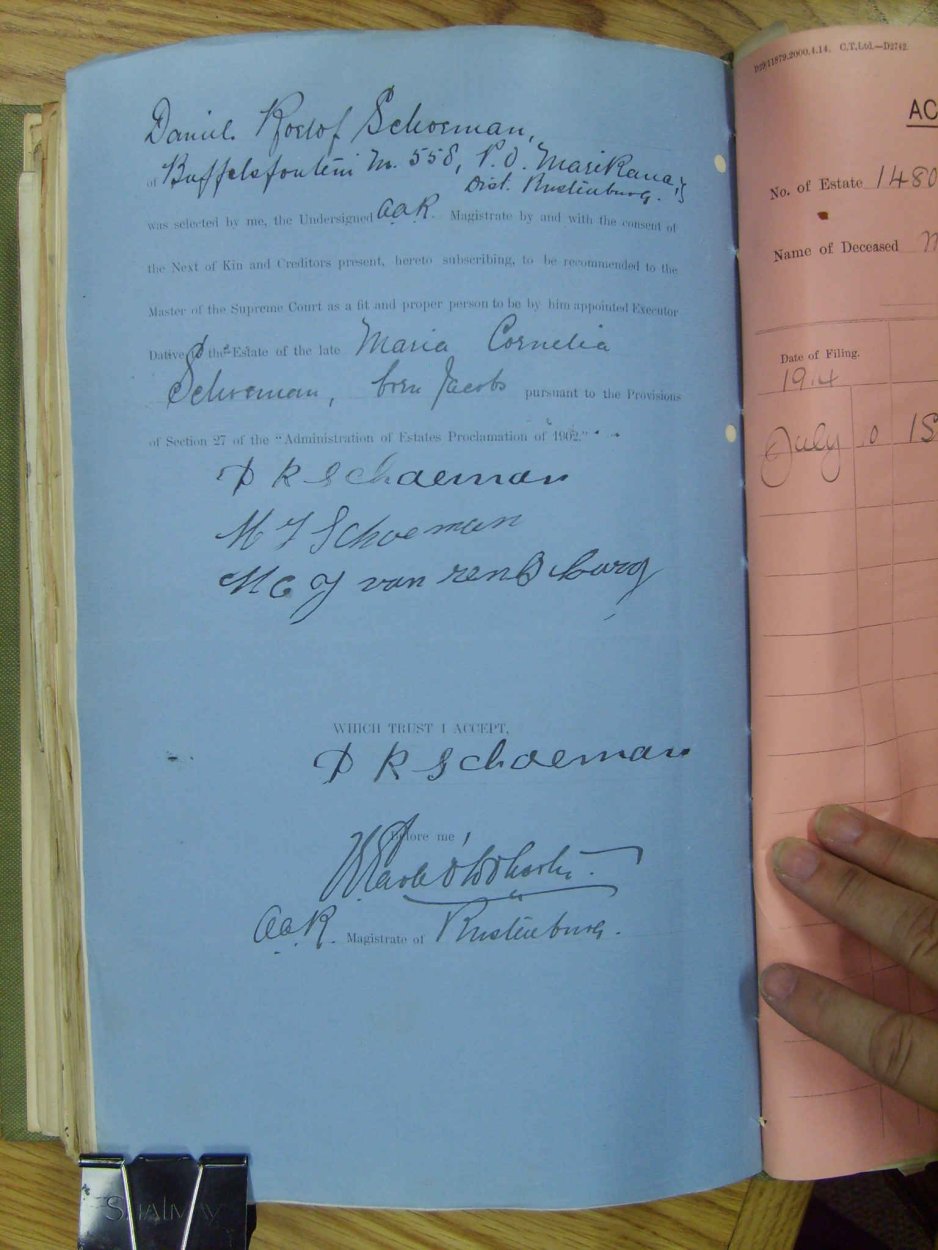 Daniel Roelof Schoeman,
of Buffelsfontein No. 558, P.O. Marikana,
Dist. Rustenburg.
was selected by me, the Undersigned a.a.R. Magistrate by and with the consent of
the Next of Kin and Creditors present, hereto subscribing, to be recommended to the
Master of the Supreme Court as a fit and proper person to be by him appointed Executor
Dative to the Estate of the late Maria Cornelia
Schoeman, born Jacobs pursuant to the Provisions
of Section 27 of the "Administration of Estates Proclamation of 1902."
D R Schoeman
M J Schoeman
M C J van rensburg
WHICH TRUST I ACCEPT,
D R Schoeman
Before me
a.a.R. Magistrate of Rustenburg.
D29/11879.2000.4.14. C.T.Ltd.—D2742.
AC
No. of Estate 1480
Name of Deceased M
Date of Filing.
1914
July
SHALMAY